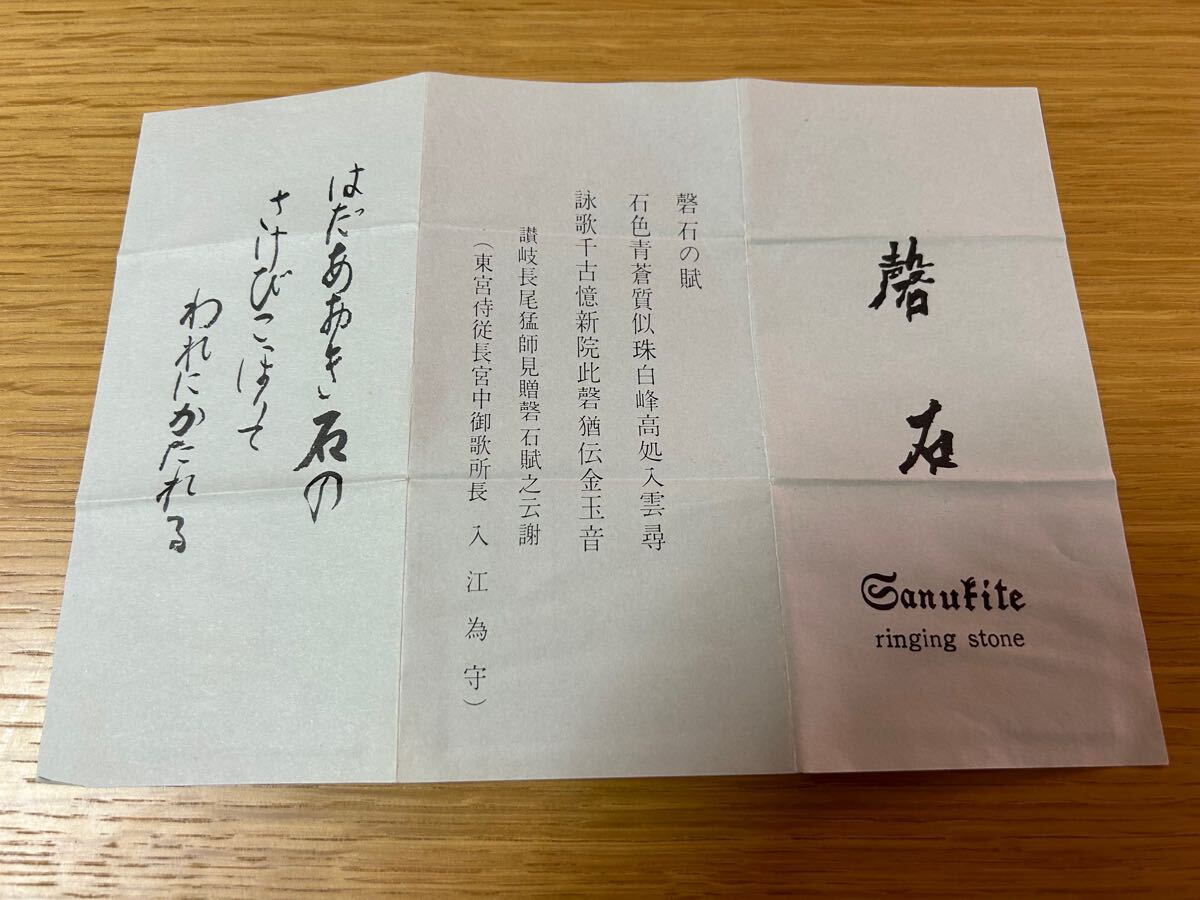 磬石
Sanukite
ringing stone
磬石の賦
石色青蒼質似珠白峰高処入雲尋
詠歌千古憶新院此磬猶伝金玉音
讃岐長尾猛師見贈磬石賦之云謝
（東宮侍従長宮中御歌所長　入江為守）
はだあおき石の
さけびこほりて
われにかたれる